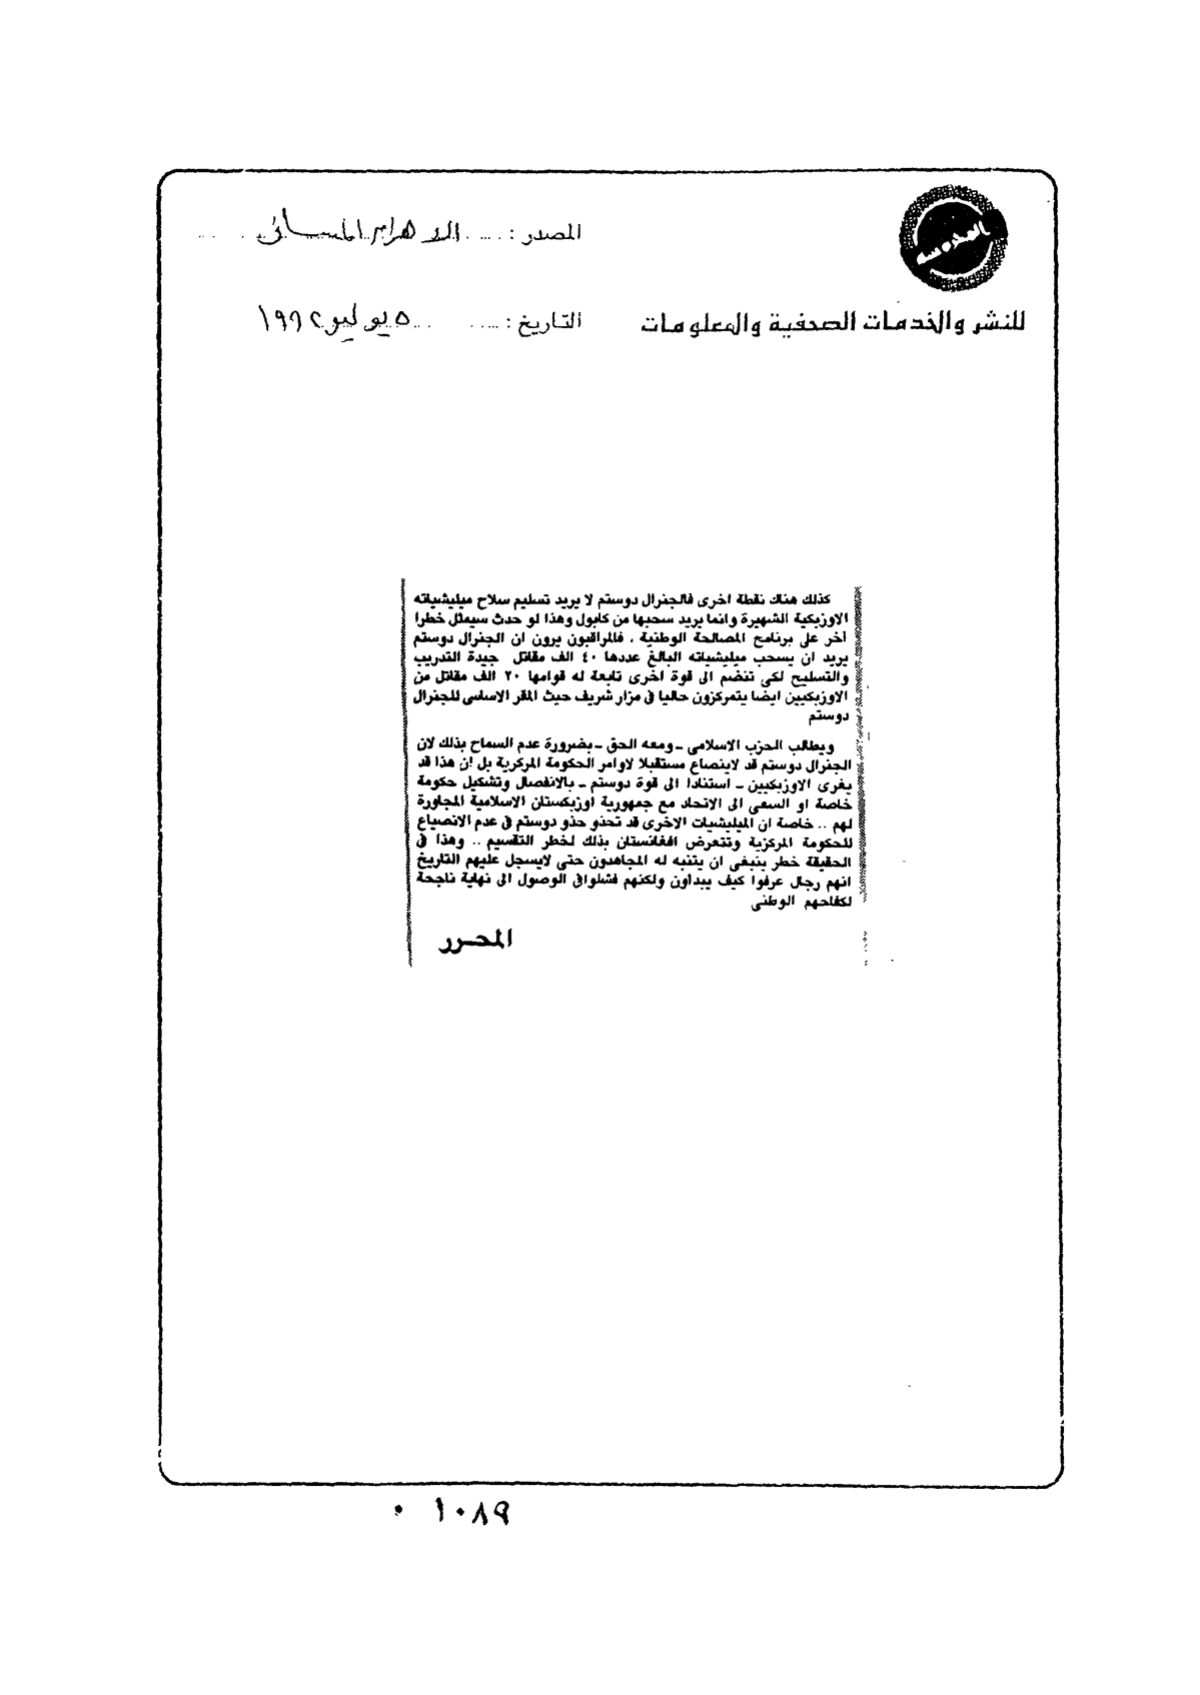 المصدر : ..... الاهرام المسائى
للنشر والخدمات الصحفية والمعلومات
التاريخ : ..... ٥ يوليو ١٩٩٢
كذلك هناك نقطة اخرى فالجنرال دوستم لا يريد تسليم سلاح ميليشياته
الاوزبكية الشهيرة وانما يريد سحبها من كابول وهذا لو حدث سيمثل خطرا
آخر على برنامج المصالحة الوطنية ، فالمراقبون يرون ان الجنرال دوستم
يريد ان يسحب ميليشياته البالغ عددها ٤٠ الف مقاتل جيدة التدريب
والتسليح لكى تنضم الى قوة اخرى تابعة له قوامها ٢٠ الف مقاتل من
الاوزبكيين ايضا يتمركزون حاليا فى مزار شريف حيث المقر الاساسى للجنرال
دوستم
ويطالب الحزب الاسلامى - ومعه الحق - بضرورة عدم السماح بذلك لان
الجنرال دوستم قد لاينصاع مستقبلا لاوامر الحكومة المركزية بل ان هذا قد
يغرى الاوزبكيين - استنادا الى قوة دوستم - بالانفصال وتشكيل حكومة
خاصة او السعى الى الاتحاد مع جمهورية اوزبكستان الاسلامية المجاورة
لهم .. خاصة ان الميليشيات الاخرى قد تحذو حذو دوستم فى عدم الانصياع
للحكومة المركزية وتتعرض افغانستان بذلك لخطر التقسيم .. وهذا فى
الحقيقة خطر ينبغى ان يتنبه له المجاهدون حتى لايسجل عليهم التاريخ
انهم رجال عرفوا كيف يبداون ولكنهم فشلوا فى الوصول الى نهاية ناجحة
لكفاحهم الوطنى
المحرر
٠١٠٨٩